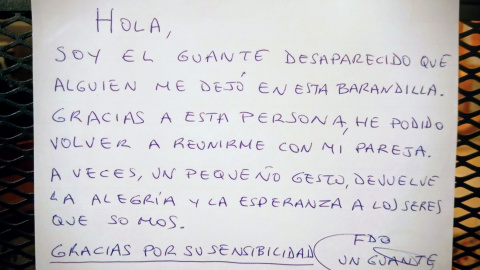 HOLA,
SOY EL GUANTE DESAPARECIDO QUE
ALGUIEN ME DEJÓ EN ESTA BARANDILLA.
GRACIAS A ESTA PERSONA, HE PODIDO
VOLVER A REUNIRME CON MI PAREJA.
A VECES, UN PEQUEÑO GESTO, DEVUELVE
LA ALEGRÍA Y LA ESPERANZA A LOS SERES
QUE SOMOS.
GRACIAS POR SU SENSIBILIDAD
FDO
UN GUANTE